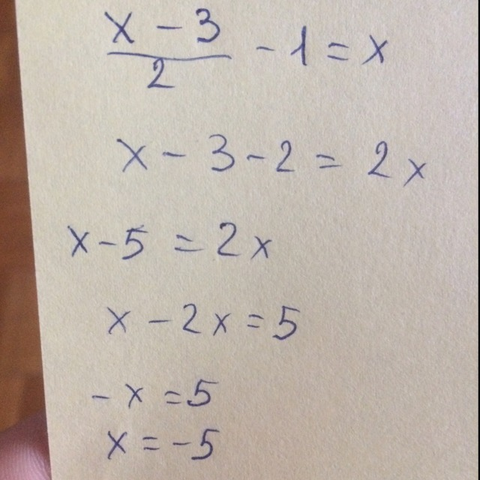 x - 3 / 2 - 1 = x
x - 3 - 2 = 2x
x - 5 = 2x
x - 2x = 5
- x = 5
x = - 5